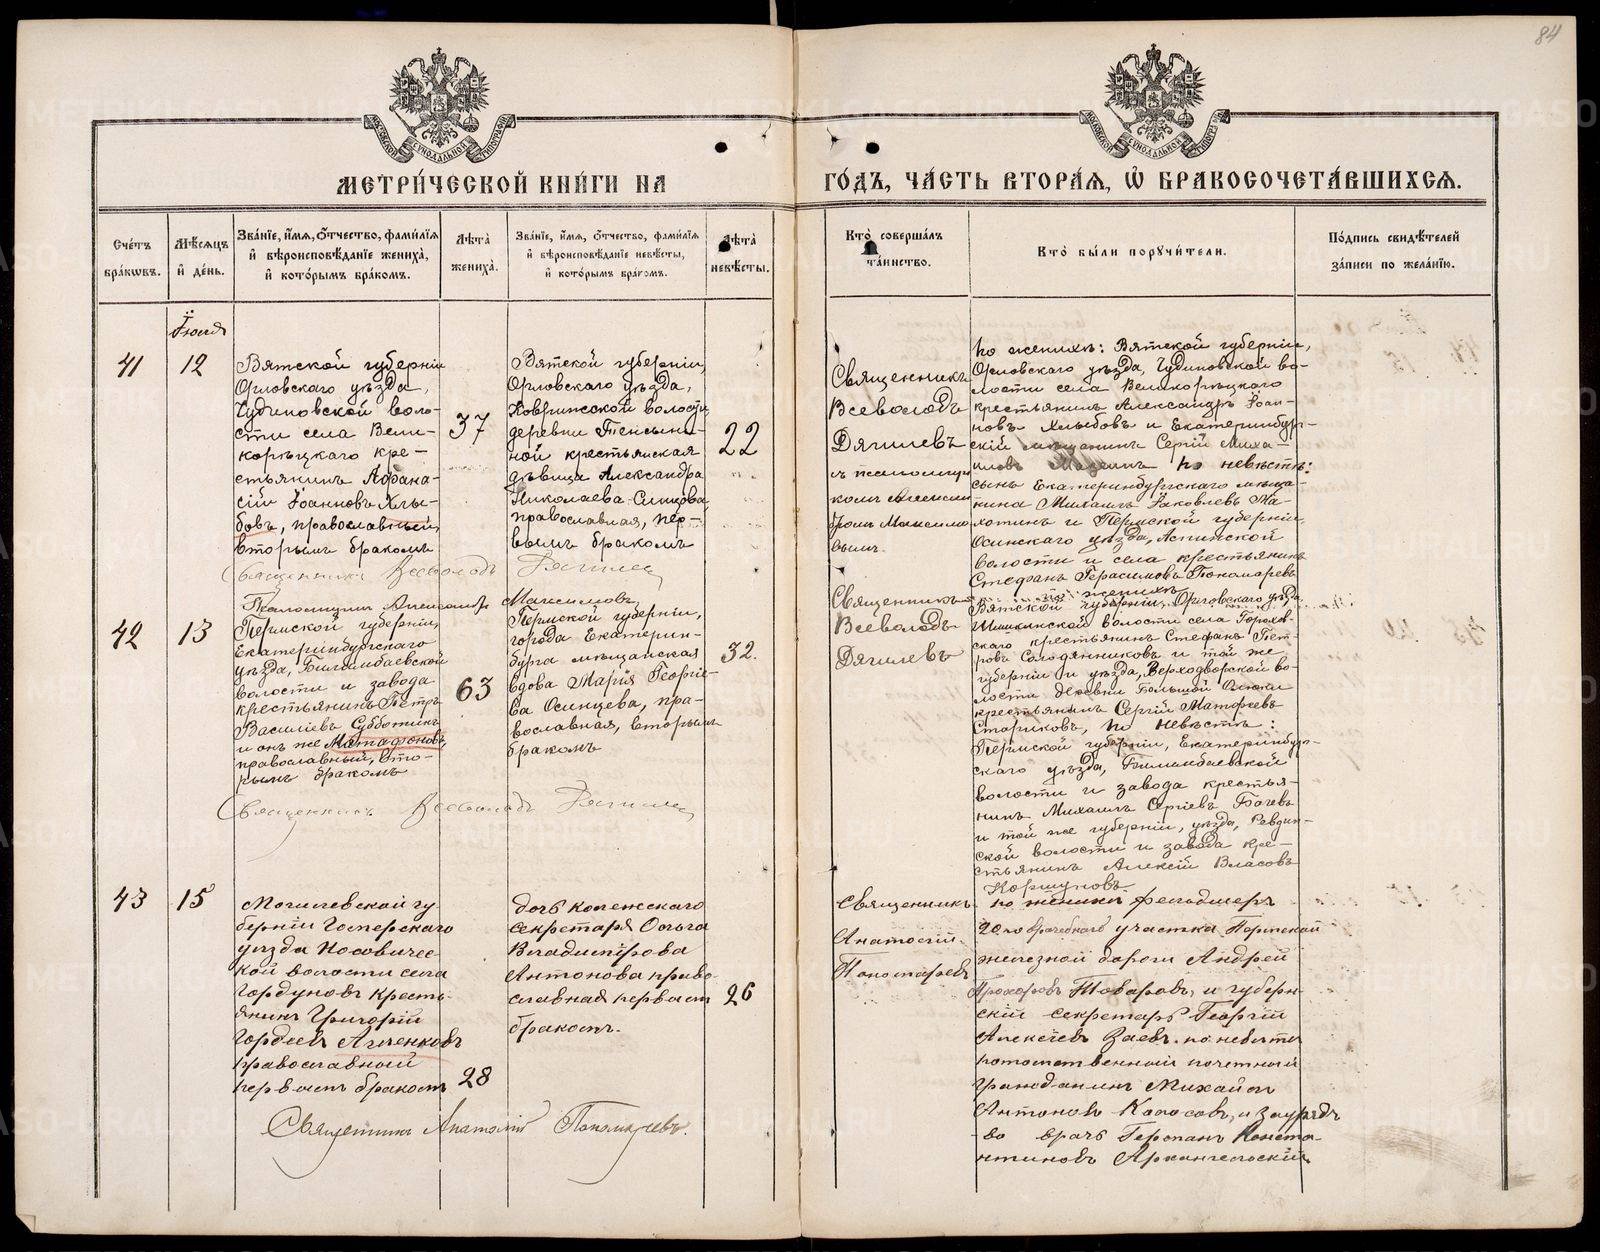 84
МЕТРИ́ЧЕСКОЙ КНИ́ГИ НА
ГО́ДЪ, ЧА́СТЬ ВТОРА́Я, Ѡ БРАКОСОЧЕТА́ВШИХСЯ.
Сче́тъ бра́кѡвъ.
Мѣ́сяцъ и҆ де́нь.
Зва́нїе, и҆́мя, ѻ҆́тчество, фами́лїя и҆ вѣроисповѣ́данїе жениха̀, и҆ кото́рымъ бра́комъ.
Лѣ́та̀ жениха̀.
Зва́нїе, и҆́мя, ѻ҆́тчество, фами́лїя и҆ вѣроисповѣ́данїе невѣ́сты, и҆ кото́рымъ бра́комъ.
Лѣ́та̀ невѣ́сты.
Кто̀ соверша́лъ та́инство.
Кто̀ бы́ли порꙋчи́тели.
По́дпись свидѣ́телей за́писи по жела́нїю.
Іюля
41
12
Вятской губерніи
Орловскаго уѣзда,
Чудиновской воло-
сти села Вели-
корѣцкаго кре-
стьянинъ Афана-
сій Іоанновъ Хлы-
бовъ, православный,
вторымъ бракомъ
37
Вятской губерніи,
Орловскаго уѣзда,
волости,
деревни
ной крестьянская
дѣвица Александра
Николаева
православная, пер-
вымъ бракомъ
22
Священникъ
Всеволодъ
Дягилевъ
съ псаломщи
комъ Алексан
дромъ Максимо
вымъ.
По женихѣ: Вятской губерніи,
Орловскаго уѣзда, Чудиновской во-
лости села Великорѣцкаго
крестьянинъ Александръ Іоан-
новъ Хлыбовъ и Екатеринбург-
скій мѣщанинъ Сергій Миха-
иловъ По невѣстѣ:
сынъ Екатеринбургскаго мѣща-
нина Михаилъ Іаковлевъ Ма-
хоткинъ и Пермской губерніи
Осинскаго уѣзда, Аспинской
волости и села крестьянинъ
Стефанъ Герасимовъ Пономаревъ
Священникъ Всеволодъ Дягилевъ
Псаломщикъ Александръ Максимовъ
42
13
Пермской губерніи,
Екатеринбургскаго
уѣзда, Билимбаевской
волости и завода
крестьянинъ Петръ
Василіевъ Субботинъ
и онъ же Матафоновъ,
православный, вто-
рымъ бракомъ
63
Пермской губерніи,
города Екатерин-
бурга мѣщанская
вдова Марія Георгіе-
ва Осинцева, пра-
вославная, вторымъ
бракомъ
32.
Священникъ
Всеволодъ
Дягилевъ
По женихѣ
Вятской губерніи, Орловскаго уѣзда
волости села
скаго крестьянинъ Стефанъ Пет-
ровъ Солодянниковъ и той же
губерніи и уѣзда, Верходворской во-
лости деревни Большой
крестьянинъ Сергій Матфеевъ
Стариковъ, По невѣстѣ:
Пермской губерніи, Екатеринбург-
скаго уѣзда, Билимбаевской
волости и завода крестья-
нинъ Михаилъ Сергіевъ
и той же губерніи, уѣзда, Ревдин-
ской волости и завода кре-
стьянинъ Алексій Власовъ
Коршуновъ.
Священникъ Всеволодъ Дягилевъ
43
15
Могилевской гу
берніи Гомерскаго
уѣзда Носовичес-
кой волости села
Гордуновъ кресть-
янинъ Григорій
Гордіевъ
православный
первымъ бракомъ
28
дочь коллежскаго
секретаря Ольга
Владимірова
Антонова право-
славная первымъ
бракомъ.
26
Священникъ
Анатолій
Пономаревъ
по женихѣ фельдшеръ
врачебнаго участка Пермской
желѣзной дороги Андрей
Прохоровъ Товаровъ, и губерн-
скій секретарь Георгій
Алексѣевъ Заевъ. по невѣстѣ
потомственный почетный
гражданинъ Михаилъ
Антоновъ Колосовъ, и Зауряд
-во врачъ Германъ Конста-
нтиновъ Архангельскій
Священникъ Анатолій Пономаревъ.
METRIKI.GASO-URAL.RU